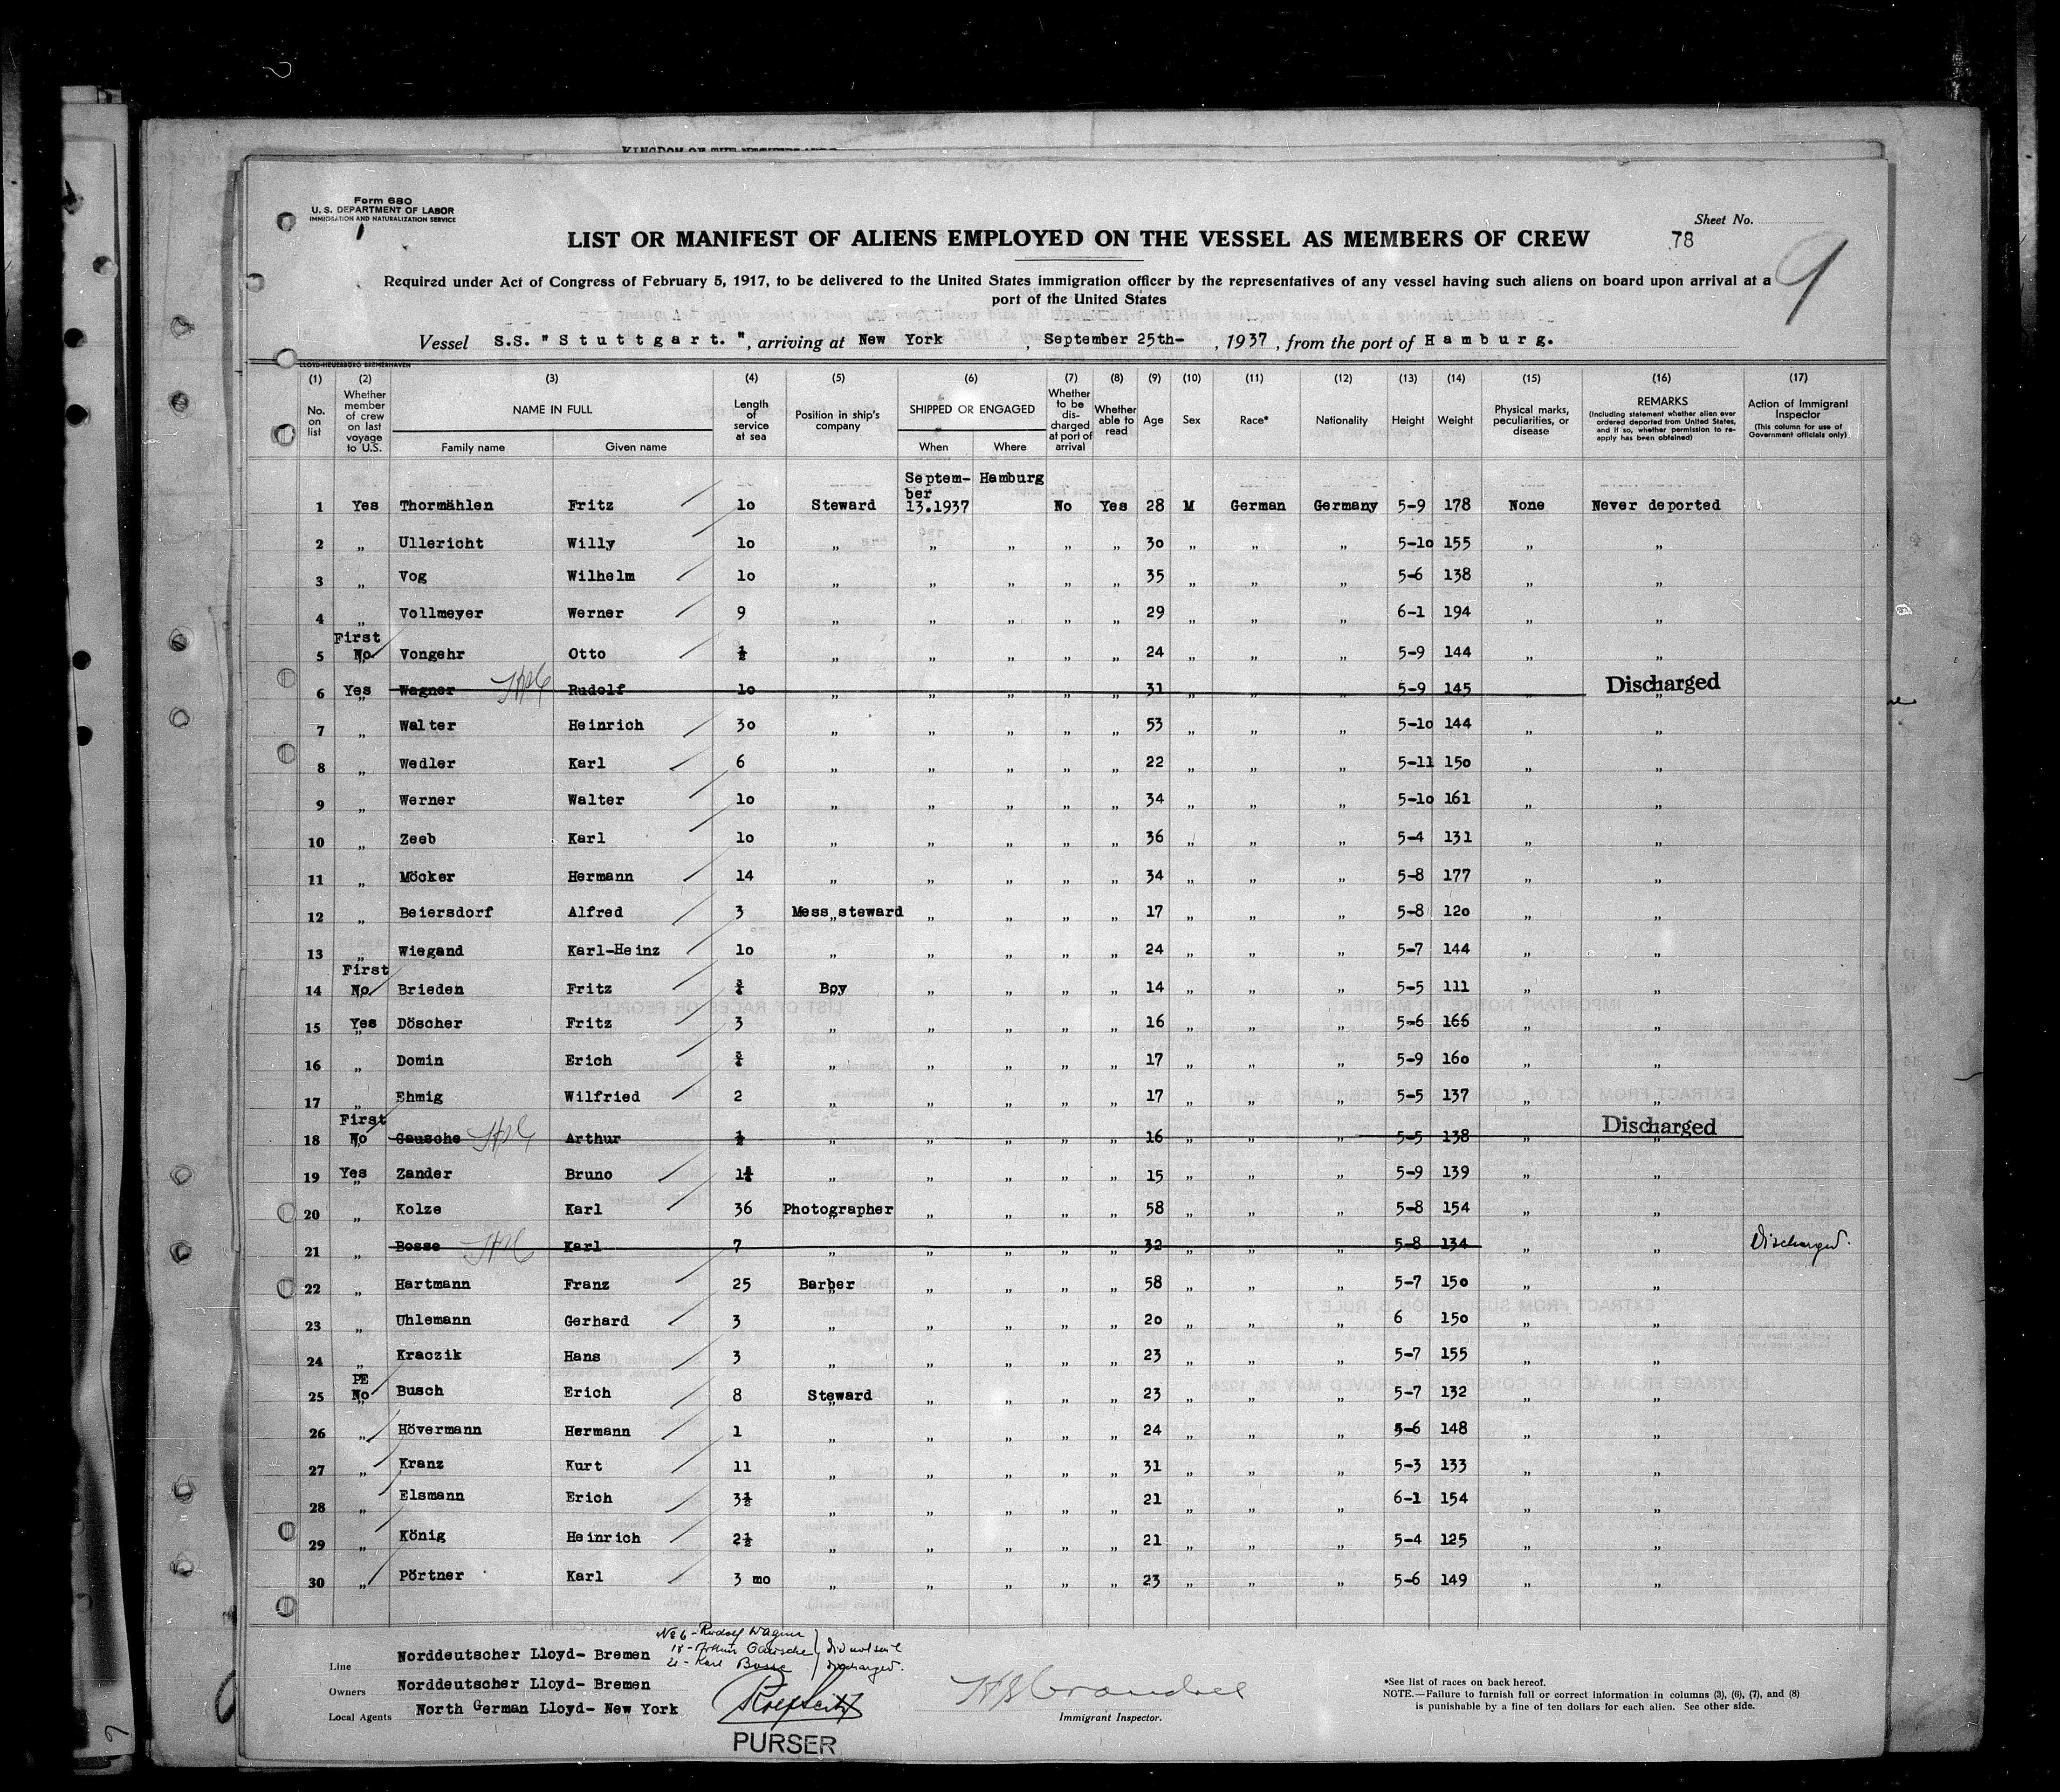 KINGDOM OF THE NETHERLANDS
Form 680
U. S. DEPARTMENT OF LABOR
IMMIGRATION AND NATURALIZATION SERVICE
Sheet No.
78
9
LIST OR MANIFEST OF ALIENS EMPLOYED ON THE VESSEL AS MEMBERS OF CREW
Required under Act of Congress of February 5, 1917, to be delivered to the United States immigration officer by the representatives of any vessel having such aliens on board upon arrival at a
port of the United States
Vessel S.S. "Stuttgart.", arriving at New York, September 25th-, 1937, from the port of Hamburg.
(1) (2) (3) (4) (5) (6) (7) (8) (9) (10) (11) (12) (13) (14) (15) (16) (17)
No. on list | Whether member of crew on last voyage to U.S. | NAME IN FULL Family name Given name | Length of service at sea | Position in ship's company | SHIPPED OR ENGAGED When Where | Whether to be discharged at port of arrival | Whether able to read | Age | Sex | Race* | Nationality | Height | Weight | Physical marks, peculiarities, or disease | REMARKS (Including statement whether alien ever ordered deported from United States, and if so, whether permission to re-apply has been obtained) | Action of Immigrant Inspector (This column for use of Government officials only)
1 Yes Thormählen Fritz 10 Steward September 13.1937 Hamburg No Yes 28 M German Germany 5-9 178 None Never deported
2 „ Ullericht Willy 10 „ „ „ „ „ 30 „ „ „ 5-10 155 „ „
3 „ Vog Wilhelm 10 „ „ „ „ „ 35 „ „ „ 5-6 138 „ „
4 „ Vollmeyer Werner 9 „ „ „ „ „ 29 „ „ „ 6-1 194 „ „
5 First No Vongehr Otto ½ „ „ „ „ „ 24 „ „ „ 5-9 144 „ „
6 Yes Wagner Rudolf 10 „ „ „ „ „ 31 „ „ „ 5-9 145 „ Discharged
7 „ Walter Heinrich 30 „ „ „ „ „ 53 „ „ „ 5-10 144 „ „
8 „ Wedler Karl 6 „ „ „ „ „ 22 „ „ „ 5-11 150 „ „
9 „ Werner Walter 10 „ „ „ „ „ 34 „ „ „ 5-10 161 „ „
10 „ Zeeb Karl 10 „ „ „ „ „ 36 „ „ „ 5-4 131 „ „
11 „ Möcker Hermann 14 „ „ „ „ „ 34 „ „ „ 5-8 177 „ „
12 „ Beiersdorf Alfred 3 Mess steward „ „ „ „ 17 „ „ „ 5-8 120 „ „
13 „ Wiegand Karl-Heinz 10 „ „ „ „ „ 24 „ „ „ 5-7 144 „ „
14 First No Brieden Fritz ¾ Boy „ „ „ „ 14 „ „ „ 5-5 111 „ „
15 Yes Döscher Fritz 3 „ „ „ „ „ 16 „ „ „ 5-6 166 „ „
16 „ Domin Erich ¾ „ „ „ „ „ 17 „ „ „ 5-9 160 „ „
17 „ Ehmig Wilfried 2 „ „ „ „ „ 17 „ „ „ 5-5 137 „ „
18 First No Gausche Arthur ½ „ „ „ „ „ 16 „ „ „ 5-5 138 „ Discharged
19 Yes Zander Bruno 1¾ „ „ „ „ „ 15 „ „ „ 5-9 139 „ „
20 „ Kolze Karl 36 Photographer „ „ „ „ 58 „ „ „ 5-8 154 „ „
21 „ Bosse Karl 7 „ „ „ „ „ 32 „ „ „ 5-8 134 „ „ Discharged.
22 „ Hartmann Franz 25 Barber „ „ „ „ 58 „ „ „ 5-7 150 „ „
23 „ Uhlemann Gerhard 3 „ „ „ „ „ 20 „ „ „ 6 150 „ „
24 „ Kraozik Hans 3 „ „ „ „ „ 23 „ „ „ 5-7 155 „ „
25 PE No Busch Erich 8 Steward „ „ „ „ 23 „ „ „ 5-7 132 „ „
26 „ Hövermann Hermann 1 „ „ „ „ „ 24 „ „ „ 5-6 148 „ „
27 „ Kranz Kurt 11 „ „ „ „ „ 31 „ „ „ 5-3 133 „ „
28 „ Elsmann Erich 3½ „ „ „ „ „ 21 „ „ „ 6-1 154 „ „
29 „ König Heinrich 2½ „ „ „ „ „ 21 „ „ „ 5-4 125 „ „
30 „ Pörtner Karl 3 mo „ „ „ „ „ 23 „ „ „ 5-6 149 „ „
No 6 - Rudolf Wagner
18 - Arthur Gausche did not sail
21 - Karl Bosse discharged.
Line Norddeutscher Lloyd- Bremen
Owners Norddeutscher Lloyd- Bremen
Local Agents North German Lloyd- New York
PURSER
Immigrant Inspector.
*See list of races on back hereof.
NOTE.—Failure to furnish full or correct information in columns (3), (6), (7), and (8)
is punishable by a fine of ten dollars for each alien. See other side.